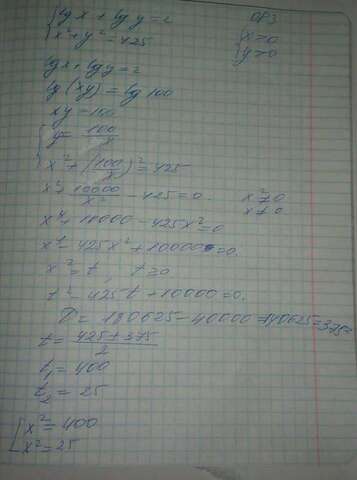 {lg x + lg y = 2 ОДЗ
{x² + y² = 425 {x>0
{y>0
lg x + lg y = 2
lg (xy) = lg 100
xy = 100
{y = 100/x
{x² + (100/x)² = 425
x² + 10000/x² - 425 = 0. x² ≠ 0
x ≠ 0
x⁴ + 10000 - 425x² = 0
x⁴ - 425x² + 10000 = 0.
x² = t, t ≥ 0
t² - 425t + 10000 = 0.
D = 180625 - 40000 = 140625 = 375²
t = (425 ± 375)/2
t₁ = 400
t₂ = 25
[x² = 400
[x² = 25